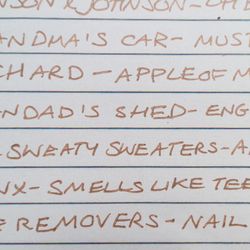 NSON & JOHNSON - CHE
ANDMA'S CAR - MUST
CHARD - APPLE OF M
NDAD'S SHED - ENG
SWEATY SWEATERS - A
NX - SMELLS LIKE TEE
E REMOVERS - NAIL